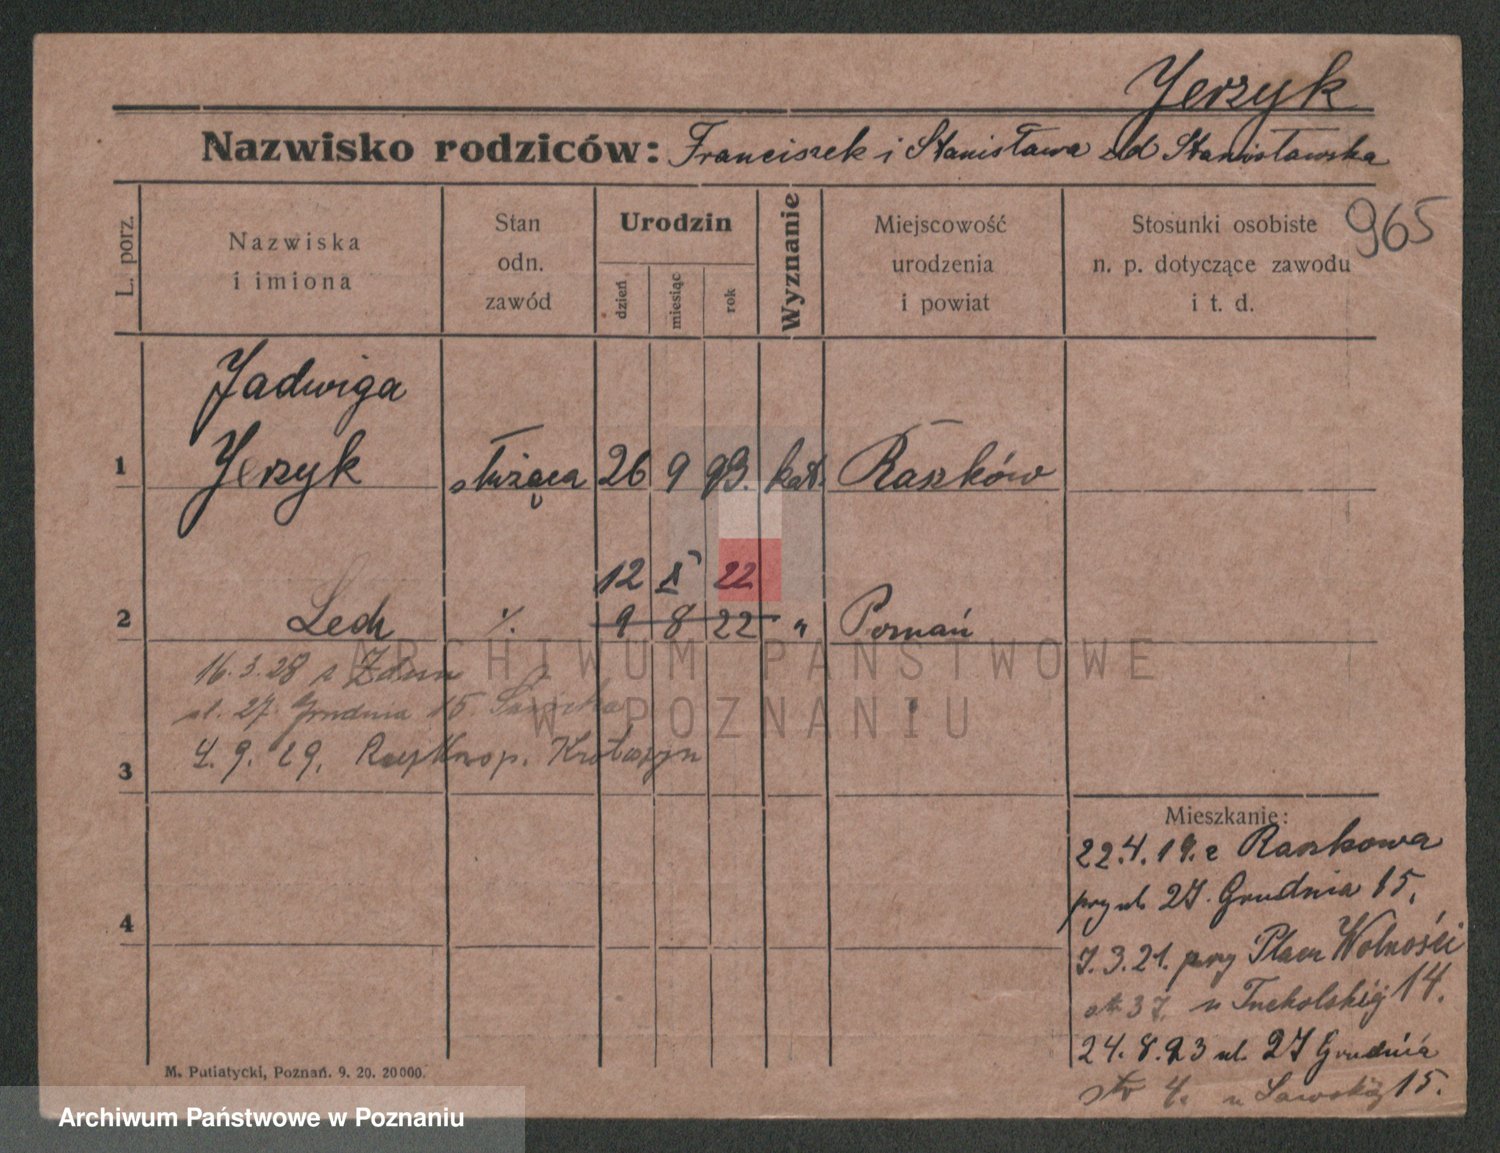 Jerzyk
Nazwisko rodziców: Franciszek i Stanisława zd Stanisławska
965
L. porz.
Nazwiska
i imiona
Stan
odn.
zawód
Urodzin
dzień
miesiąc
rok
Wyznanie
Miejscowość
urodzenia
i powiat
Stosunki osobiste
n. p. dotyczące zawodu
i t. d.
Jadwiga
1 Jerzyk służąca 26 9 93. kat. Raszków
12 X 22
2 Lech ·/. 9 8 22 „ Poznań
16.3.28 z Zdun
ul. 27 Grudnia 15
3 4.9.29. Krotoszyn
ARCHIWUM PAŃSTWOWE
W POZNANIU
Mieszkanie:
22.4.19. z Raszkowa
przy ul. 27. Grudnia 15.
7.3.21. przy Placu Wolności
14.
u Tucholskiej
4
24.8.23 ul. 27 Grudnia
15.
M. Putiatycki, Poznań. 9. 20. 20000.
Archiwum Państwowe w Poznaniu